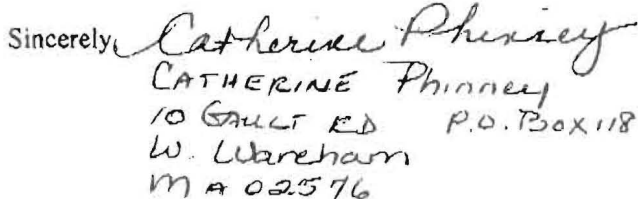 Sincerely, Catherine Phinney
CATHERINE Phinney
10 GAULT RD P.O. Box 118
W. Wareham
MA 02576